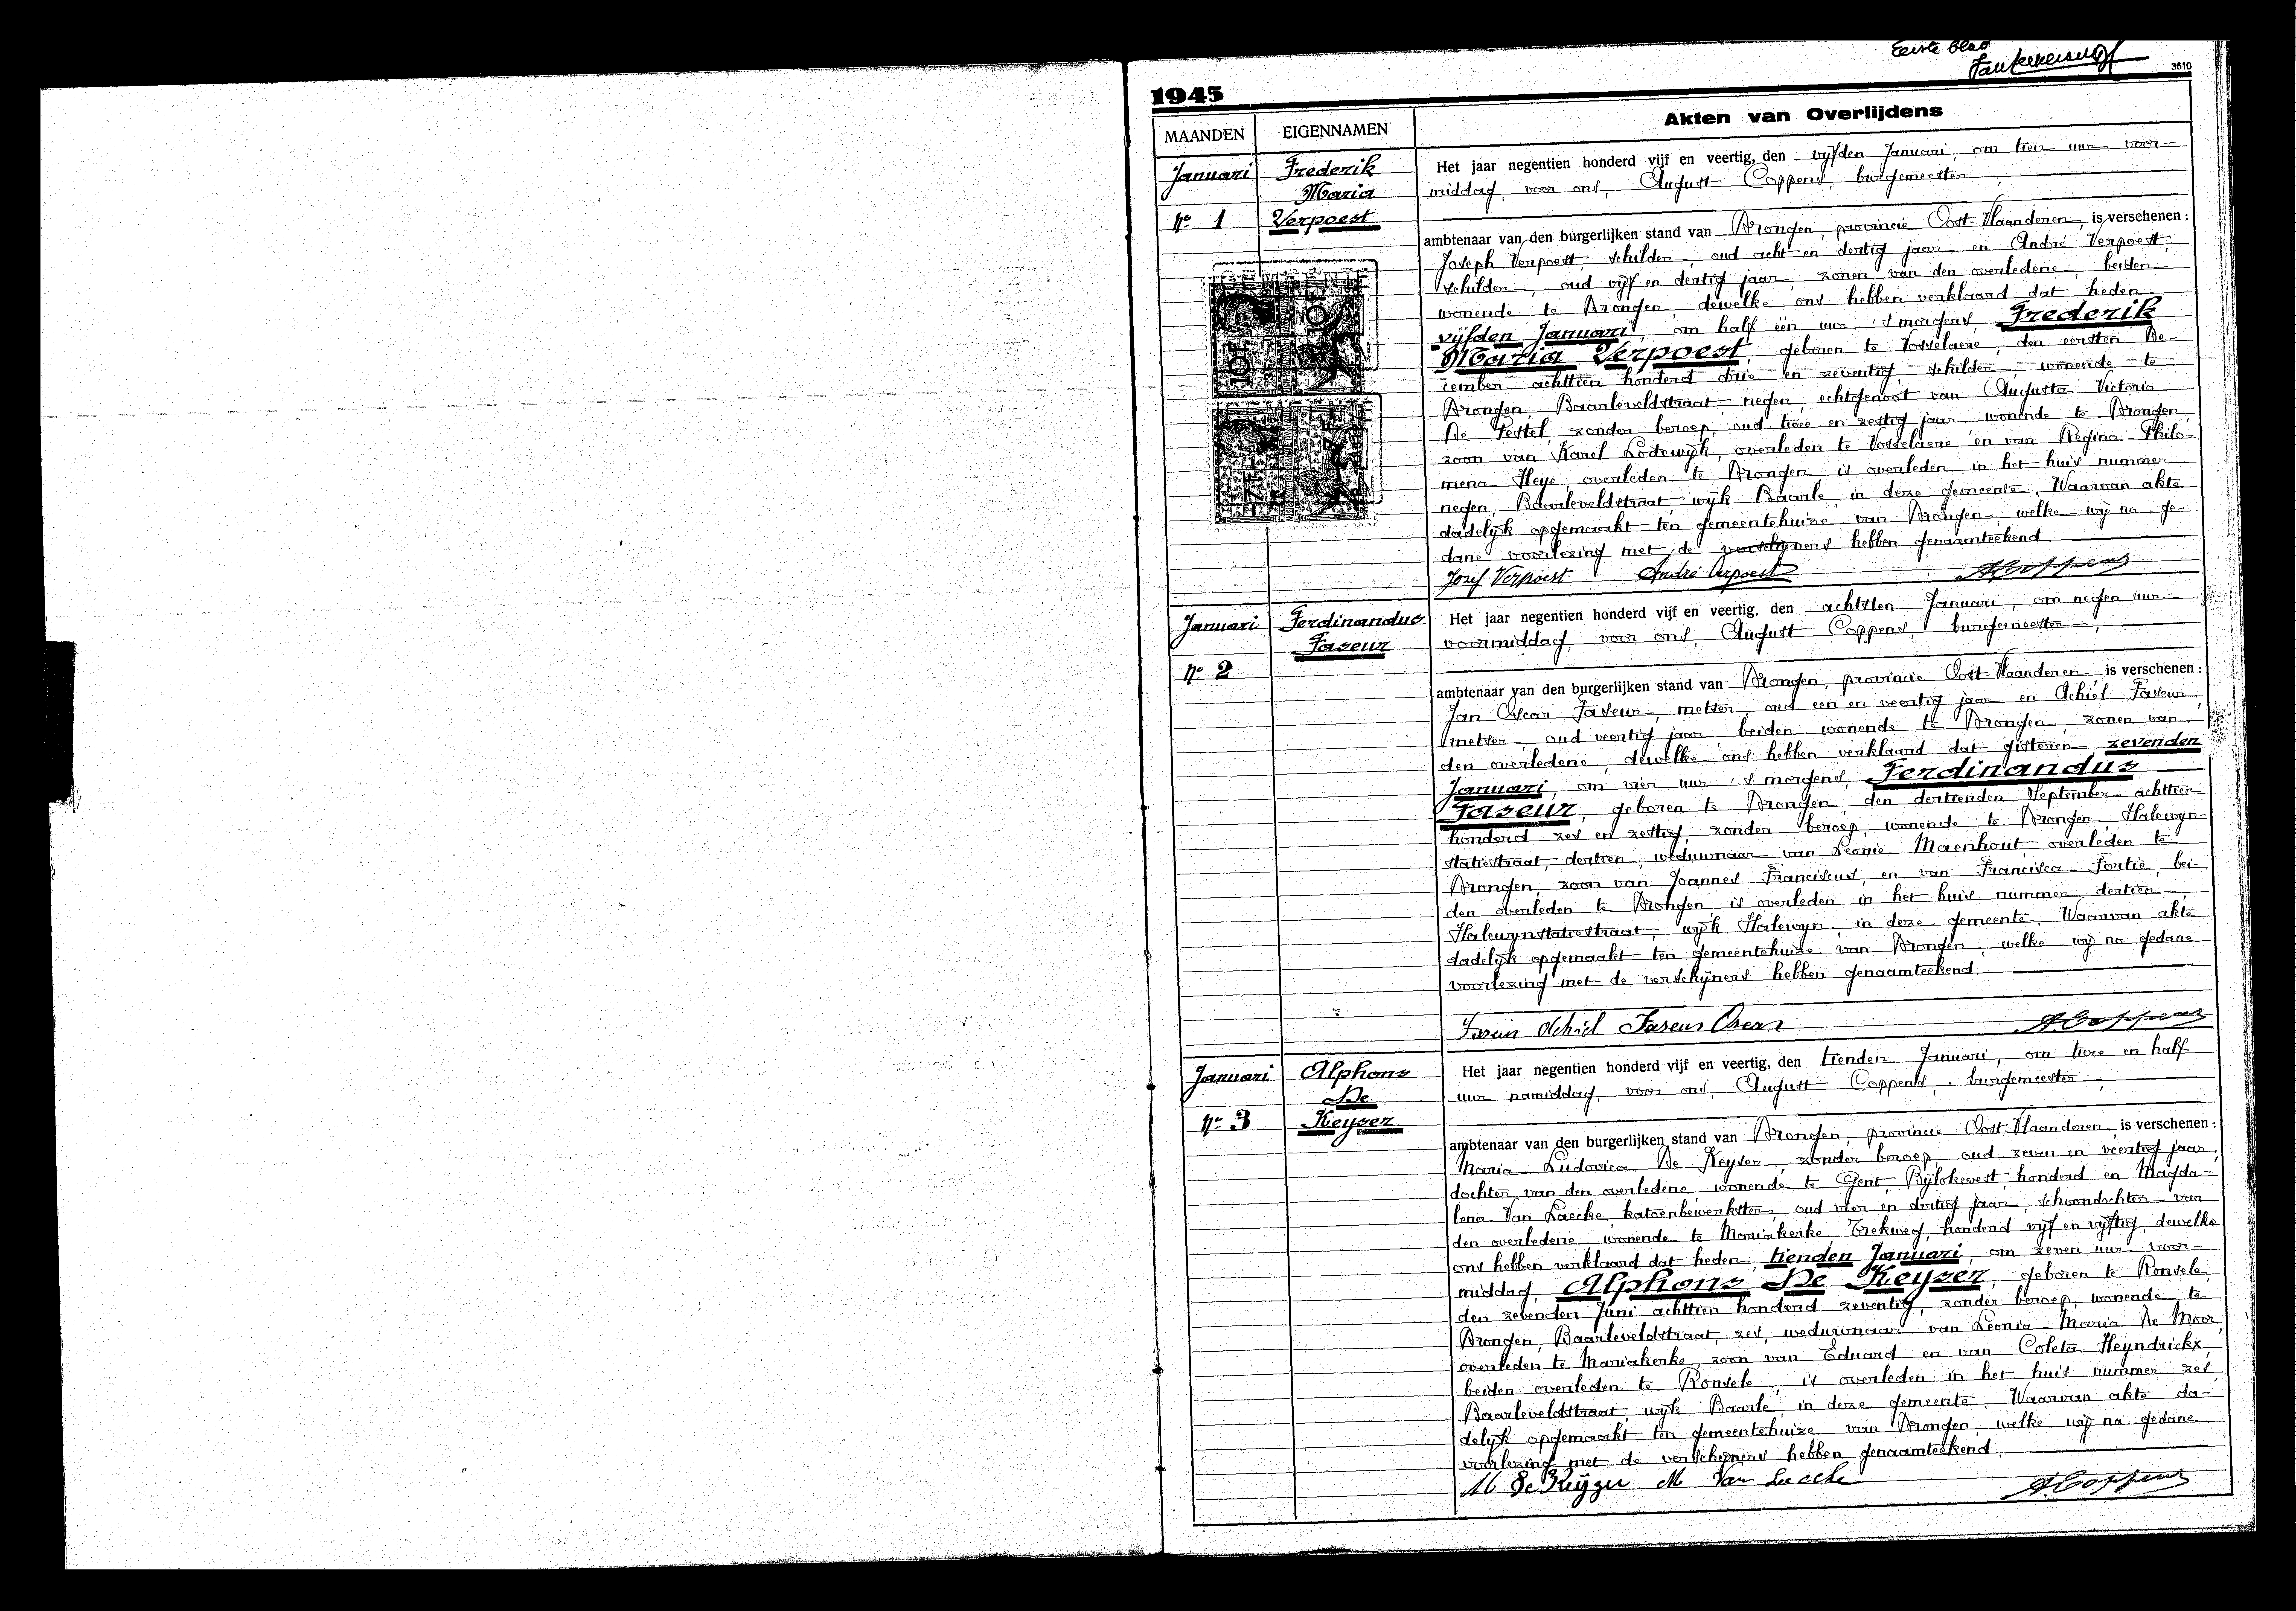 Eerste blad
3610
1945
MAANDEN
EIGENNAMEN
Akten van Overlijdens
Januari
Nr 1
Frederik
Maria
Verpoest
Het jaar negentien honderd vijf en veertig, den vijfden Januari, om tien uur voor-
middag, voor ons, August Coppens, burgemeester,
ambtenaar van den burgerlijken stand van Drongen, provincie Oost-Vlaanderen, is verschenen :
Joseph Verpoest, schilder, oud acht en dertig jaar en André Verpoest,
schilder, oud vijf en dertig jaar, zonen van den overledene, beiden
wonende te Drongen, dewelke ons hebben verklaard dat heden
vijfden Januari, om half één uur 's morgens, Frederik
Maria Verpoest, geboren te Vosselaere, den eersten De-
cember achttien honderd drie en zeventig, schilder, wonende te
Drongen, Baarleveldstraat, negen, echtgenoot van Augusta Victoria
De Pestel, zonder beroep, oud twee en zestig jaar, wonende te Drongen,
zoon van Karel Lodewijk, overleden te Vosselaere en van Regina Philo-
mena Heye, overleden te Drongen, is overleden in het huis nummer
negen, Baarleveldstraat, wijk Baarle, in deze gemeente. Waarvan akte
dadelijk opgemaakt ten gemeentehuize van Drongen, welke wij na ge-
dane voorlezing met de verschijners hebben genaamteekend.
Jozef Verpoest André Verpoest ACoppens
GEMEENTE
10F
10F
7F
7F
Januari
Nr 2
Ferdinandus
Faseur
Het jaar negentien honderd vijf en veertig, den achtsten Januari, om negen uur
voormiddag, voor ons, August Coppens, burgemeester,
ambtenaar van den burgerlijken stand van Drongen, provincie Oost-Vlaanderen, is verschenen :
Jan Oscar Faseur, metser, oud een en veertig jaar en Achiel Faseur,
metser, oud veertig jaar, beiden wonende te Drongen, zonen van
den overledene, dewelke ons hebben verklaard dat gisteren zevenden
Januari, om vier uur 's morgens, Ferdinandus
Faseur, geboren te Drongen, den dertienden September achttien
honderd zes en zestig, zonder beroep, wonende te Drongen, Halewyn-
statiestraat, dertien, weduwnaar van Leonie Maenhout overleden te
Drongen, zoon van Joannes Franciscus, en van Francisca Fortie, bei-
den overleden te Drongen is overleden in het huis nummer dertien,
Halewynstatiestraat, wijk Halewyn, in deze gemeente. Waarvan akte
dadelijk opgemaakt ten gemeentehuize van Drongen, welke wij na gedane
voorlezing met de verschijners hebben genaamteekend.
Achiel Faseur Oscar ACoppens
Januari
Nr 3
Alphons
De
Keyser
Het jaar negentien honderd vijf en veertig, den tienden Januari, om twee en half
uur namiddag, voor ons, August Coppens, burgemeester,
ambtenaar van den burgerlijken stand van Drongen, provincie Oost-Vlaanderen, is verschenen :
Maria Ludovica De Keyser, zonder beroep, oud zeven en veertig jaar,
dochter van den overledene, wonende te Gent, Bijlokevest, honderd en Magda-
lena Van Laecke, katoenbewerkster, oud vier en dertig jaar, schoondochter van
den overledene, wonende te Mariakerke, Trekweg, honderd vijf en vijftig, dewelke
ons hebben verklaard dat heden, tienden Januari, om zeven uur voor-
middag, Alphons De Keyser, geboren te Ronsele,
den zevenden Juni achttien honderd zeventig, zonder beroep, wonende te
Drongen, Baarleveldstraat, zes, weduwnaar van Leonia Maria De Moor,
overleden te Mariakerke, zoon van Eduard en van Coleta Heyndrickx,
beiden overleden te Ronsele, is overleden in het huis nummer zes,
Baarleveldstraat, wijk Baarle, in deze gemeente. Waarvan akte da-
delijk opgemaakt ten gemeentehuize van Drongen, welke wij na gedane
voorlezing met de verschijners hebben genaamteekend.
M De Keyzer M Van Laecke ACoppens